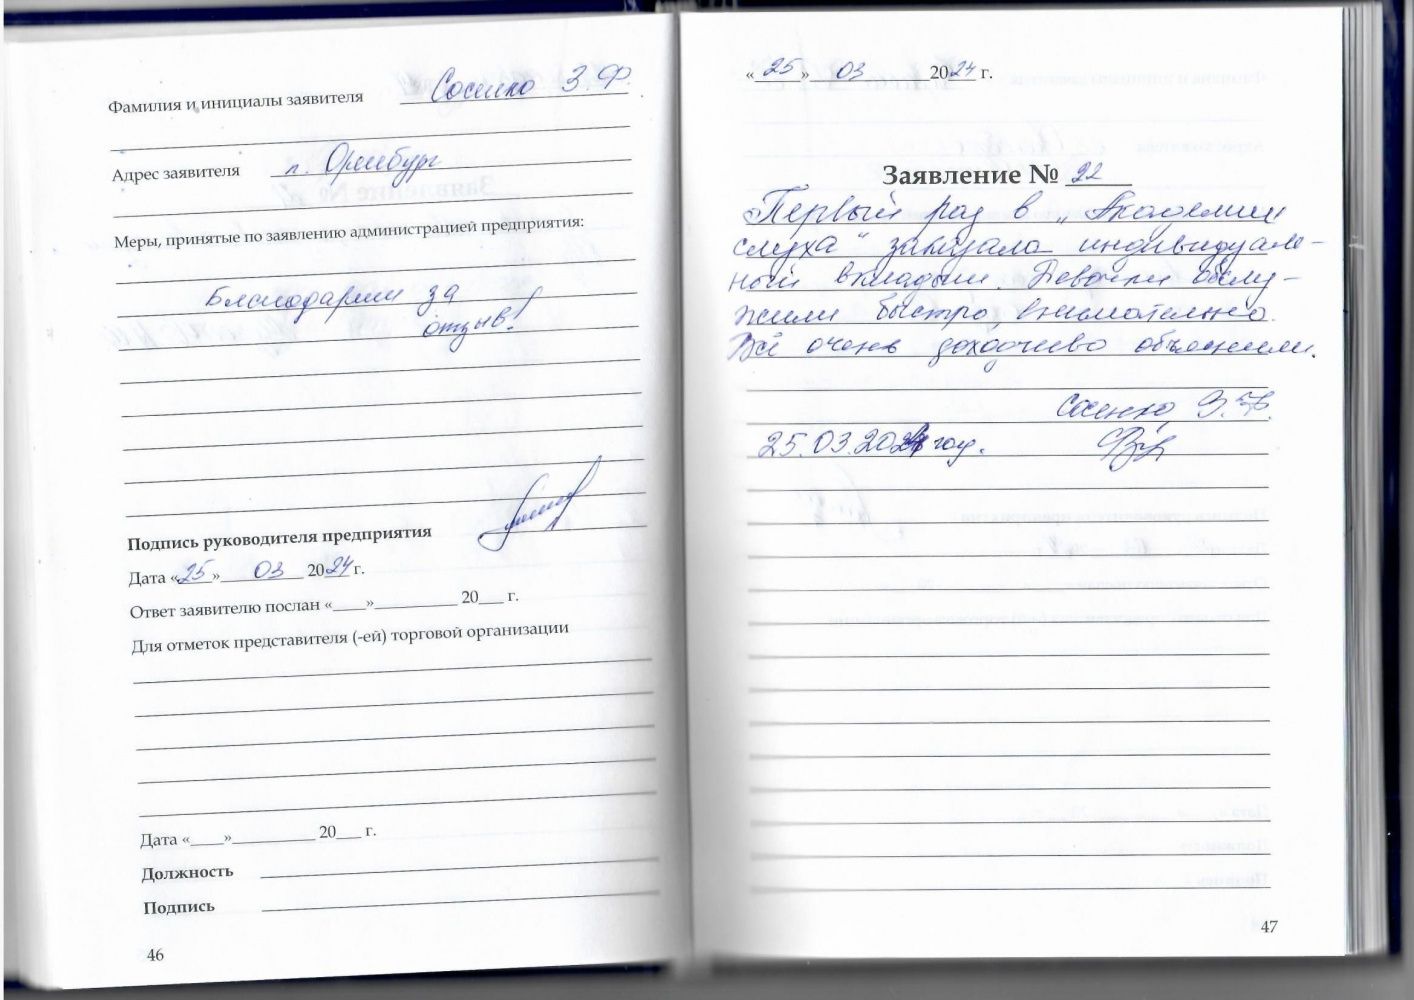 Фамилия и инициалы заявителя Сосенко З.Ф.
Адрес заявителя г. Оренбург
Меры, принятые по заявлению администрацией предприятия:
Благодарим за
отзыв!
Подпись руководителя предприятия
Дата «25» 03 2024 г.
Ответ заявителю послан «____»__________ 20___ г.
Для отметок представителя (-ей) торговой организации
Дата «____»__________ 20___ г.
Должность
Подпись
46
«25» 03 2024 г.
Заявление № 22
Первый раз в „Академии
слуха" заказала индивидуаль-
ный вкладыш. Девочки обслу-
жили быстро, внимательно.
Всё очень доходчиво объяснили.
Сосенко З.Ф.
25.03.2024 год.
47